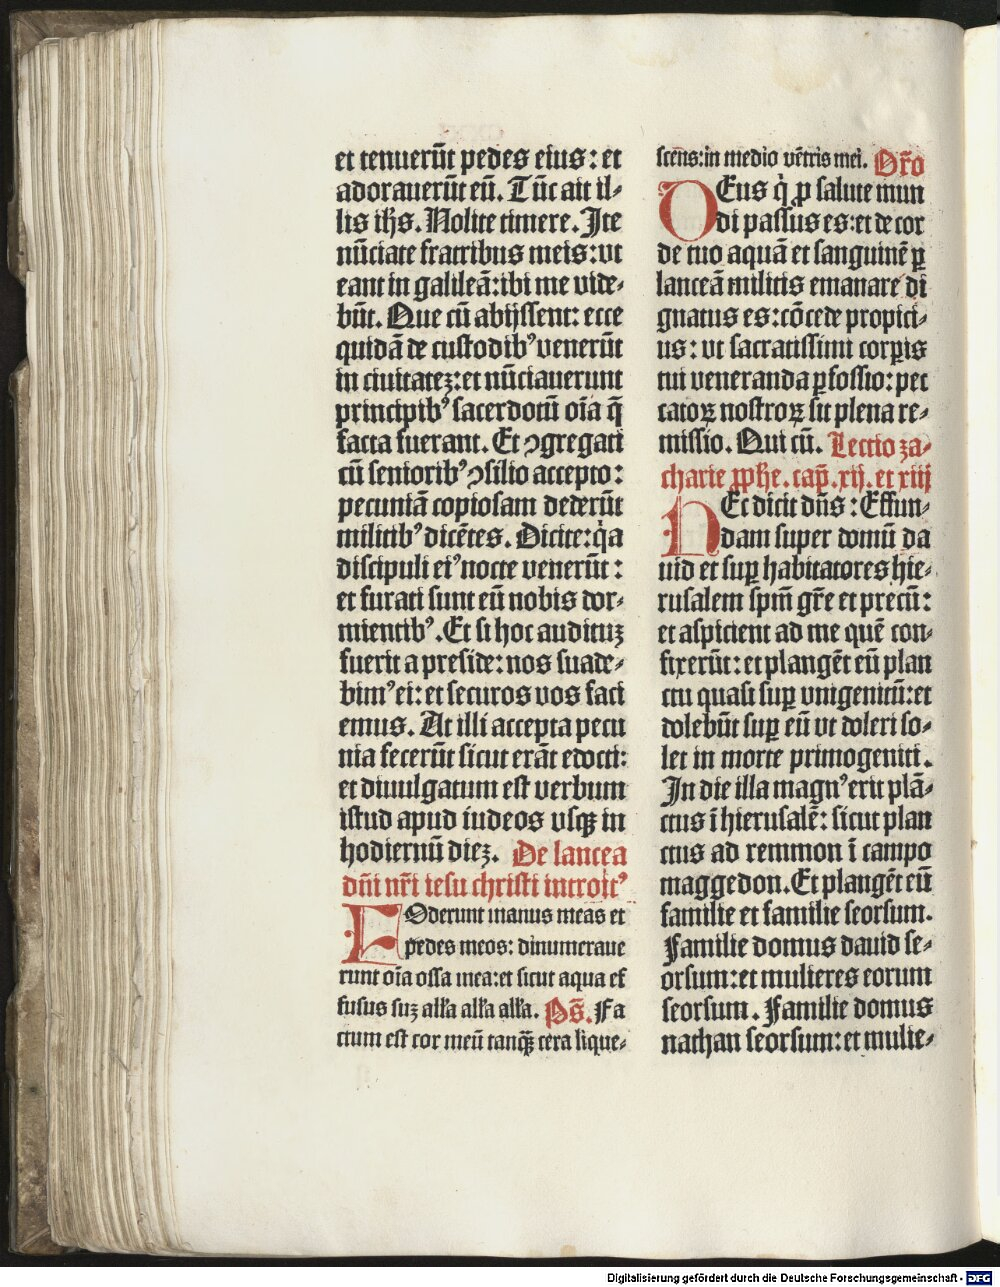 et tenuerūt pedes eius: et
adorauerūt eū. Tūc ait il⸗
lis ih̄s. Nolite timere. Ite
nūciate fratribus meis: vt
eant in galileā: ibi me vide⸗
būt. Que cū abijssent: ecce
quidā de custodibꝰ venerūt
in ciuitatez: et nūciauerunt
principibꝰ sacerdotū oīa q̄
facta fuerant. Et ꝯgregati
cū senioribꝰ ꝯsilio accepto:
pecuniā copiosam dederūt
militibꝰ dicētes. Dicite: qͥa
discipuli eiꝰ nocte venerūt:
et furati sunt eū nobis dor⸗
mientibꝰ. Et si hoc audituz
fuerit a preside: nos suade⸗
bimꝰ ei: et securos vos faci
emus. At illi accepta pecu
nia fecerūt sicut erāt edocti:
et diuulgatum est verbum
istud apud iudeos vsqꝫ in
hodiernū diez. De lancea
dn̄i nr̄i iesu christi introitꝰ
FOderunt manus meas et
pedes meos: dinumeraue
runt oīa ossa mea: et sicut aqua ef
fusus suꝫ all'a all'a all'a. Ps̄. Fa
ctum est cor meū tanqꝫ cera lique⸗
scens: in medio vētris mei. Or̄o
DEus qͥ ꝓ salute mun
di passus es: et de cor
de tuo aquā et sanguinē ꝑ
lanceā militis emanare di
gnatus es: cōcede propici⸗
us: vt sacratissimi corꝑis
tui veneranda ꝑfossio: pec
catoꝝ nostroꝝ sit plena re⸗
missio. Qui cū. Lectio za⸗
charie ꝓphe. cap̄. xij. et xiij
HEc dicit dn̄s: Effun⸗
dam super domū da
uid et suꝑ habitatores hie⸗
rusalem spm̄ gr̄e et precū:
et aspicient ad me quē con⸗
fixerūt: et plangēt eū plan
ctu quasi suꝑ vnigenitū: et
dolebūt suꝑ eū vt doleri so⸗
let in morte primogeniti.
In die illa magnꝰ erit plā⸗
ctus ī hierusalē: sicut plan
ctus ad remmon ī campo
maggedon. Et plangēt eū
familie et familie seorsum.
Familie domus dauid se⸗
orsum: et mulieres eorum
seorsum. Familie domus
nathan seorsum: et mulie⸗
Digitalisierung gefördert durch die Deutsche Forschungsgemeinschaft - DFG